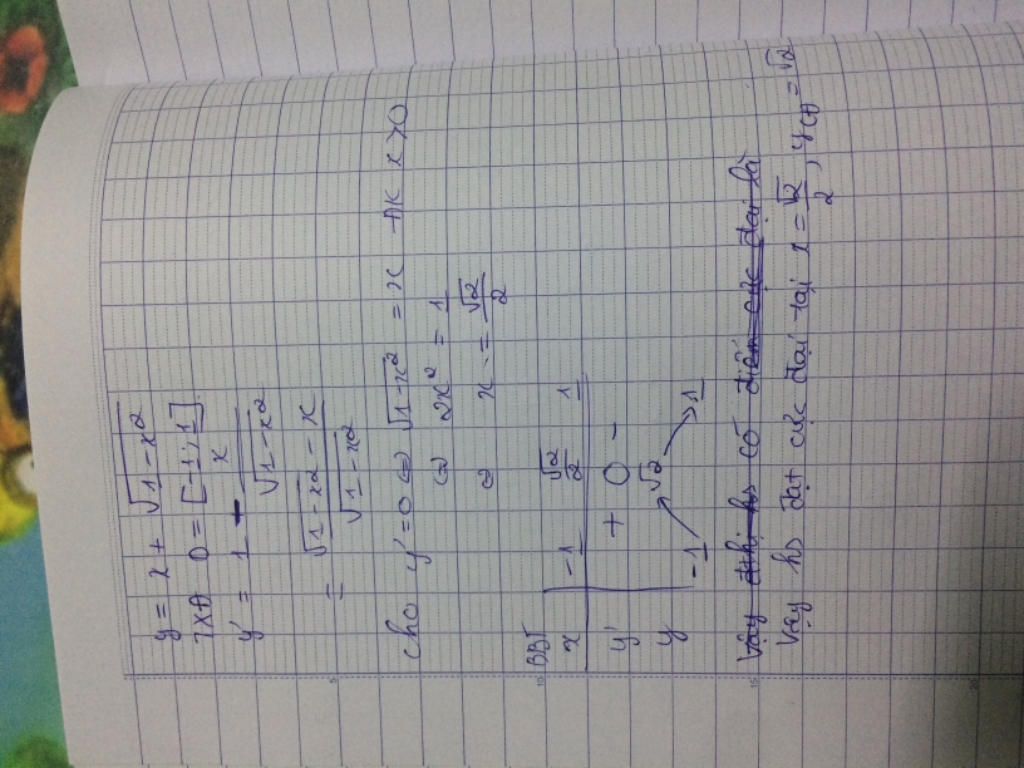 y = x + √(1-x²)
TXĐ D = [-1; 1]
y' = 1 - x/√(1-x²)
= (√(1-x²) - x)/√(1-x²)
Cho y' = 0 ⇔ √(1-x²) = x ĐK x > 0
⇔ 2x² = 1
⇔ x = √2/2
BBT
x -1 √2/2 1
y' + 0 -
y -1 ↗ √2 ↘ 1
Vậy đthị hs có điểm cực đại là
Vậy hs đạt cực đại tại x = √2/2, yCĐ = √2
5
10
15
20